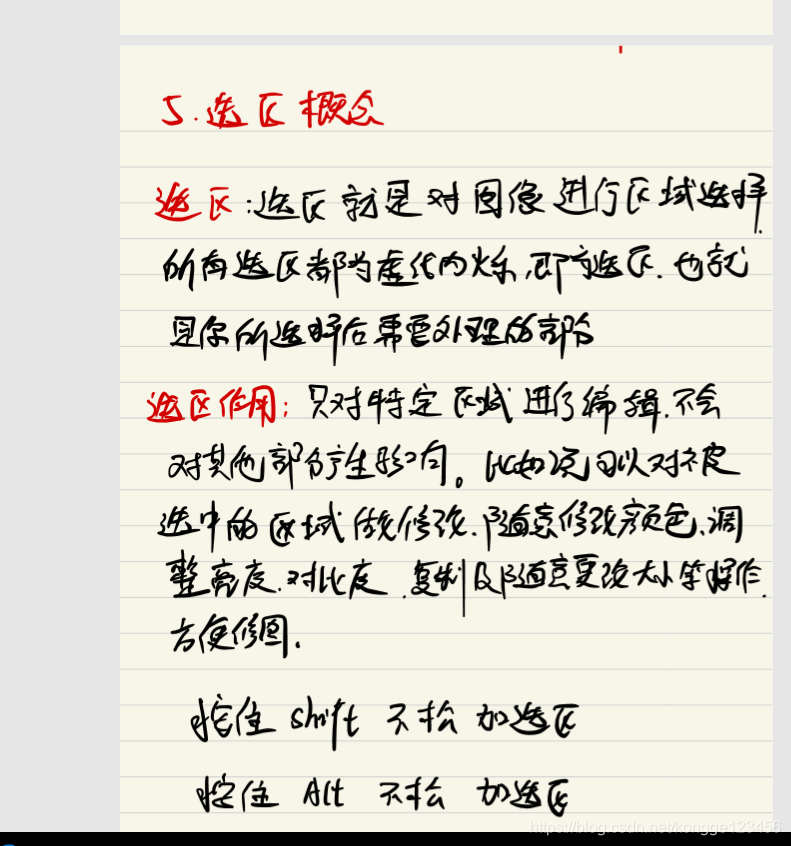 5.选区概念
选区:选区就是对图像进行区域选择.
所有选区都为虚线内火乐,即为选区.也就
是你所选择后需要处理的部份
选区作用:只对特定区域进行编辑.不会
对其他部分产生影响。比如说可以对被
选中的区域做修改.随意修改颜色.调
整亮度.对比度.复制及随意更改大小等操作.
方便修图.
按住 shift 不松 加选区
按住 Alt 不松 加选区
https://blog.csdn.net/kongge123456